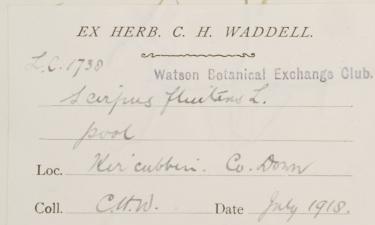 EX HERB. C. H. WADDELL.
L.C. 1738
Watson Botanical Exchange Club.
Scirpus fluitans L.
pool
Loc. Kircubbin. Co. Down
Coll. C.H.W. Date July 1918.